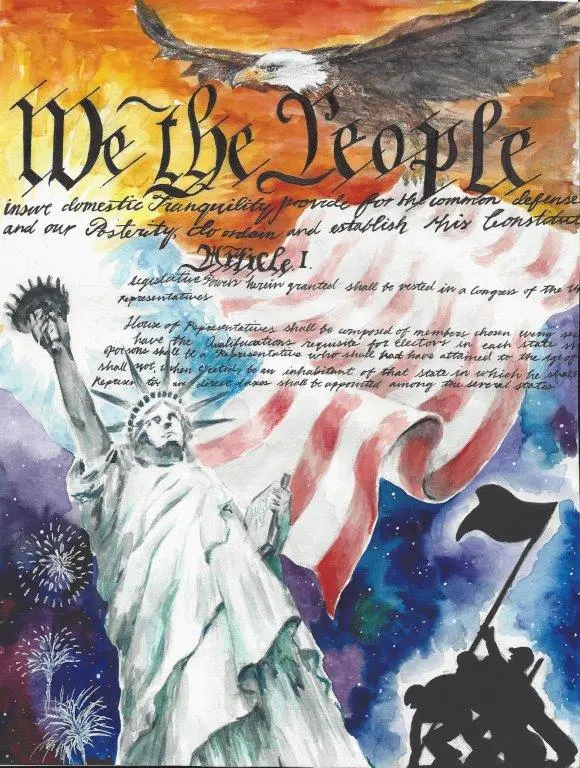 We the People
insure domestic Tranquility, provide for the common defense
and our Posterity, do ordain and establish this Constitut
Article I.
Legislative Powers herein granted shall be vested in a Congress of the
Representatives
House of Representatives shall be composed of members chosen every
have the Qualifications requisite for electors in each state
persons shall be a Representative who shall have attained to the Age of
shall not, when elected, be an inhabitant of that state in which he shall
direct taxes shall be appointed among the several states